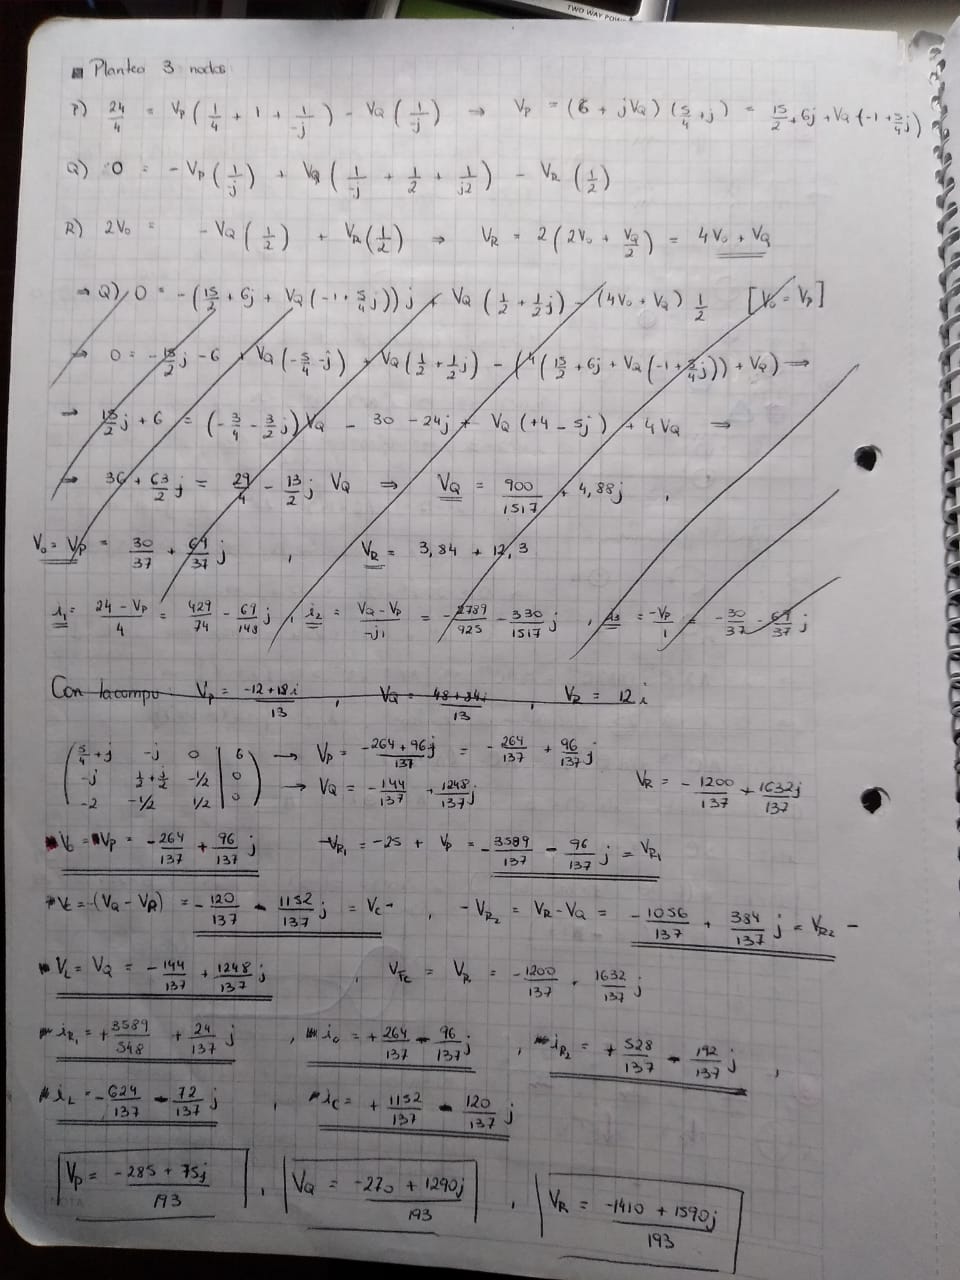 TWO WAY POW
■ Planteo 3 nodos
P) 24/4 = Vp(1/4 + 1 + 1/-j) - VQ(1/-j) → Vp = (6 + jVQ)(5/4 + j) = 15/2 + 6j + VQ(-1 + 5/4 j)
Q) 0 = - Vp(1/-j) + VQ(1/-j + 1/2 + 1/j2) - VR(1/2)
R) 2Vo = - VQ(1/2) + VR(1/2) ⇒ VR = 2(2Vo + VQ/2) = 4Vo + VQ
⇒ Q) 0 = -(15/2 + 6j + VQ(-1 + 5/4 j))j + VQ(1/2 + 1/2 j) - (4Vo + VQ) 1/2 [Vo = Vp]
⇒ 0 = -15/2 j - 6 + VQ(-5/4 - j) + VQ(1/2 + 1/2 j) - (4(15/2 + 6j + VQ(-1 + 5/4 j)) + VQ) ⇒
⇒ 15/2 j + 6 = (-3/4 - 3/2 j)VQ - 30 - 24j + VQ(+4 - 5j) + 4VQ ⇒
⇒ 36 + 63/2 j = 29/4 - 13/2 j VQ ⇒ VQ = 900/1517 + 4,88j ,
Vo = Vp = 30/37 + 69/37 j , VR = 3,84 + 12,3
i1 = 24 - Vp/4 = 429/74 - 69/148 j , i2 = VQ - Vp/-j1 = -2789/925 - 330/1517 j , i3 = -Vp/1 = -30/37 - 69/37 j
Con lacompu Vp = -12+18i/13 , VQ = 48+84i/13 , VR = 12i
(5/4 + j -j 0 | 6) → Vp = -264 + 96j/137 = -264/137 + 96/137 j
(-j 1/2 + j/2 -1/2 | 0) → VQ = -144/137 + 1248/137 j VR = -1200/137 + 1632j/137
(-2 -1/2 1/2 | 0)
Vo = Vp = -264/137 + 96/137 j -VR1 = -25 + Vp = -3589/137 - 96/137 j = VR1
Vc = -(VQ - VR) = -120/137 - 1152/137 j = Vc- , -VR2 = VR - VQ = -1056/137 + 384/137 j = VR2 -
VL = VQ = -144/137 + 1248/137 j , VFc = VR = -1200/137 + 1632/137 j
iR1 = +3589/548 + 24/137 j , io = +264/137 - 96/137 j , iR2 = +528/137 - 192/137 j ,
iL = -624/137 - 72/137 j , iC = +1152/137 - 120/137 j
Vp = -285 + 75j/193 , VQ = -270 + 1290j/193 , VR = -1410 + 1590j/193